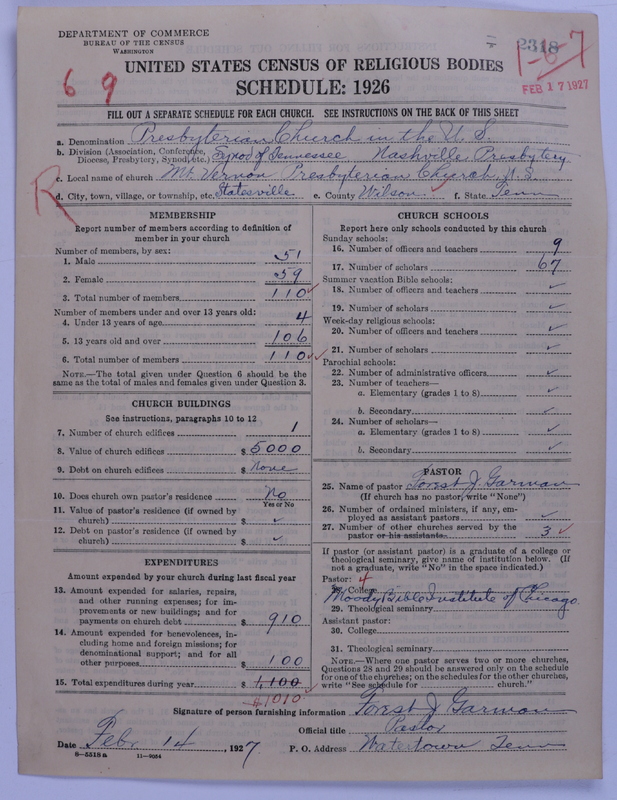 DEPARTMENT OF COMMERCE
BUREAU OF THE CENSUS
WASHINGTON
2318
1-6-7
FEB 17 1927
6 9
UNITED STATES CENSUS OF RELIGIOUS BODIES
SCHEDULE: 1926
FILL OUT A SEPARATE SCHEDULE FOR EACH CHURCH. SEE INSTRUCTIONS ON THE BACK OF THIS SHEET
a. Denomination Presbyterian Church in the U. S.
b. Division (Association, Conference, Diocese, Presbytery, Synod, etc.) Synod of Tennessee Nashville Presbytery
c. Local name of church Mt. Vernon Presbyterian Church U. S.
R
d. City, town, village, or township, etc. Statesville e. County Wilson f. State Tenn
MEMBERSHIP
Report number of members according to definition of
member in your church
Number of members, by sex:
1. Male 51
2. Female 59
3. Total number of members 110
Number of members under and over 13 years old:
4. Under 13 years of age 4
5. 13 years old and over 106
6. Total number of members 110
NOTE.—The total given under Question 6 should be the
same as the total of males and females given under Question 3.
CHURCH BUILDINGS
See instructions, paragraphs 10 to 12
7. Number of church edifices 1
8. Value of church edifices $ 5000
9. Debt on church edifices $ None
10. Does church own pastor's residence No
Yes or No
11. Value of pastor's residence (if owned by
church) $ ✓
12. Debt on pastor's residence (if owned by
church) $ ✓
EXPENDITURES
Amount expended by your church during last fiscal year
13. Amount expended for salaries, repairs,
and other running expenses; for im-
provements or new buildings; and for
payments on church debt $ 910
14. Amount expended for benevolences, in-
cluding home and foreign missions; for
denominational support; and for all
other purposes $ 100
15. Total expenditures during year $ 1,100
$1010
CHURCH SCHOOLS
Report here only schools conducted by this church
Sunday schools:
16. Number of officers and teachers 9
17. Number of scholars 67
Summer vacation Bible schools:
18. Number of officers and teachers ✓
19. Number of scholars ✓
Week-day religious schools:
20. Number of officers and teachers ✓
21. Number of scholars ✓
Parochial schools:
22. Number of administrative officers ✓
23. Number of teachers—
a. Elementary (grades 1 to 8) ✓
b. Secondary ✓
24. Number of scholars—
a. Elementary (grades 1 to 8) ✓
b. Secondary ✓
PASTOR
25. Name of pastor Forest J. Garman
(If church has no pastor, write "None")
26. Number of ordained ministers, if any, em-
ployed as assistant pastors ✓
27. Number of other churches served by the
pastor or his assistants 3
If pastor (or assistant pastor) is a graduate of a college or
theological seminary, give name of institution below. (If
not a graduate, write "No" in the space indicated.)
Pastor: 4
28. College
Moody Bible Institute of Chicago
29. Theological seminary
Assistant pastor:
30. College
31. Theological seminary
NOTE.—Where one pastor serves two or more churches,
Questions 28 and 29 should be answered only on the schedule
for one of the churches; on the schedules for the other churches,
write "See schedule for church."
Signature of person furnishing information Forest J. Garman
Official title Pastor
Date Feb. 14, 1927 P. O. Address Watertown Tenn
8-5518a 11-9054